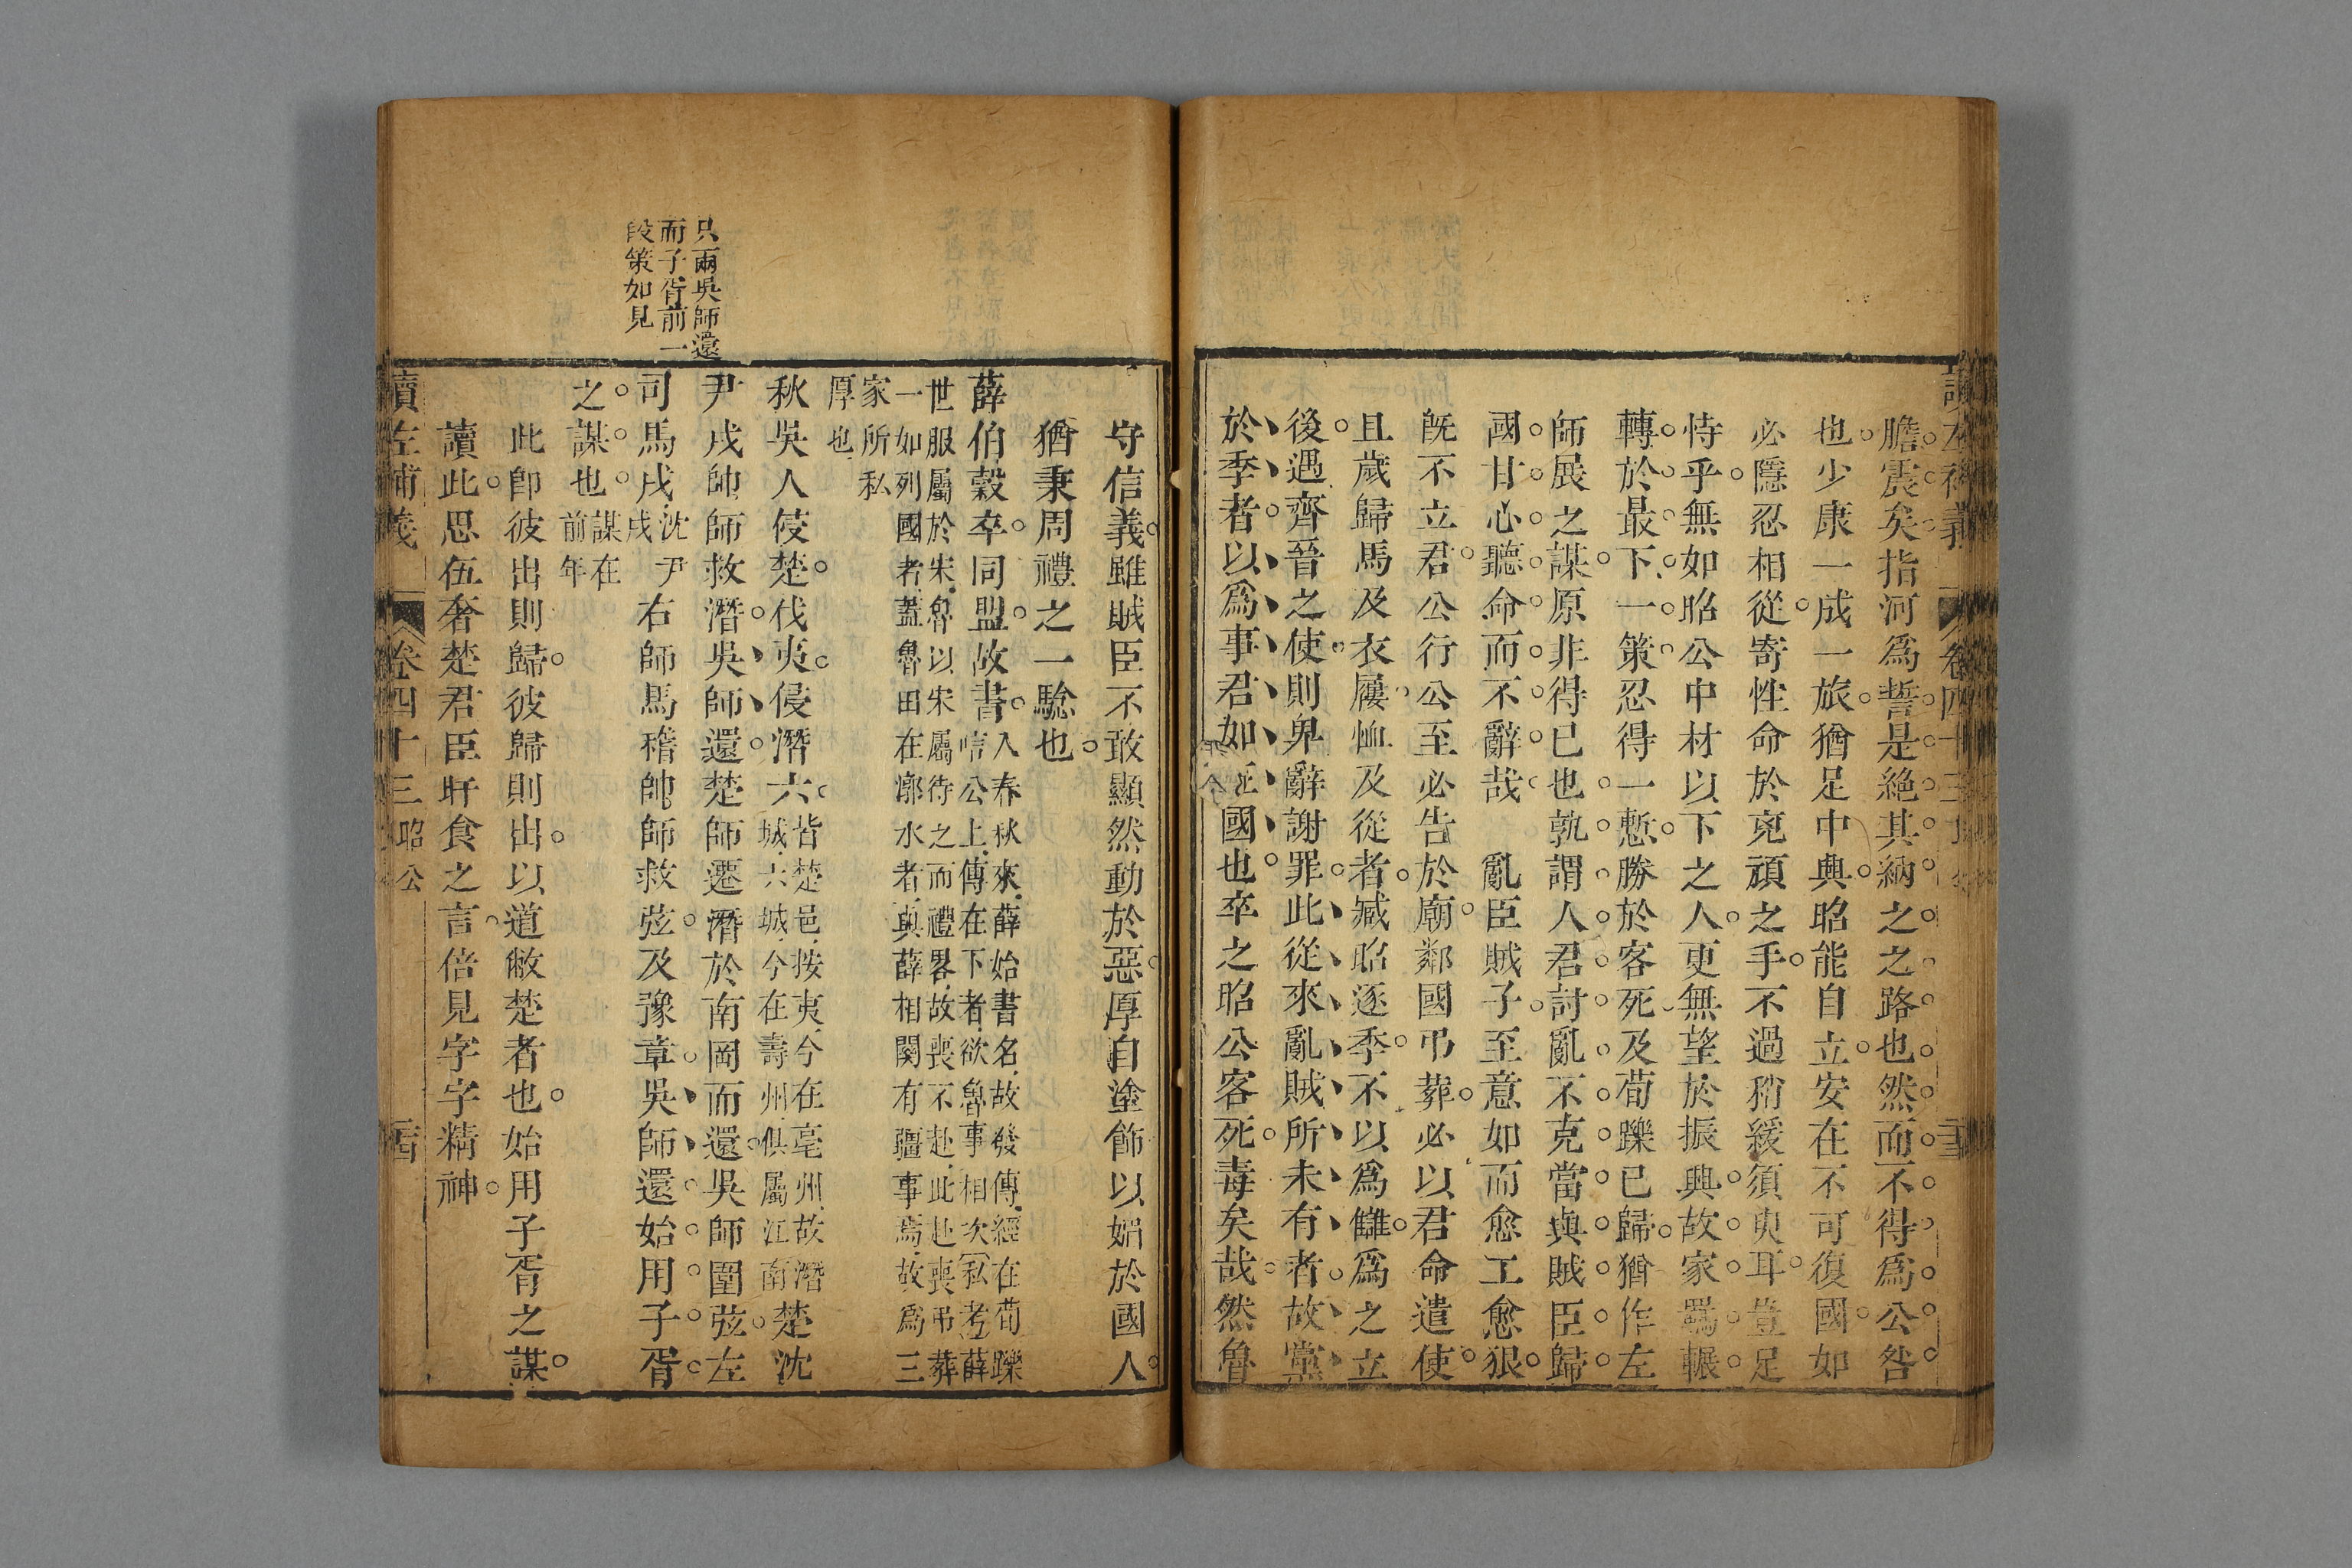 膽震矣指河爲誓是絶其納之之路也然而不得爲公咎
也少康一成一旅猶足中興昭能自立安在不可復國如
必隱忍相從寄性命於兇頑之手不過稍緩須臾耳豈足
恃乎無如昭公中材以下之人更無望於振興故家羈輾
轉於最下一策忍得一慙勝於客死及荀躒已歸猶作左
師展之謀原非得已也孰謂人君討亂不克當與賊臣歸
國甘心聽命而不辭哉 亂臣賊子至意如而愈工愈狠
旣不立君公行公至必告於廟鄰國弔葬必以君命遣使
且歲歸馬及衣屨恤及從者臧昭逐季不以爲讎爲之立
後遇齊晉之使則卑辭謝罪此從來亂賊所未有者故黨
於季者以爲事君如在國也卒之昭公客死毒矣哉然魯
守信義雖賊臣不敢顯然動於惡厚自塗飾以媚於國人
猶秉周禮之一驗也
薛伯穀卒同盟故書入春秋來薛始書名故發傳經在荀躒
唁公上傳在下者欲魯事相次（私考）薛
世服屬於宋魯以宋屬待之而禮畧故喪不赴此赴喪弔葬
一如列國者蓋魯田在漷水者與薛相關有疆事焉故爲三
家所私
厚也
秋吳人侵楚伐夷侵潛六皆楚邑按夷今在亳州故潛
城六城今在壽州俱屬江南楚沈
尹戌帥師救潛吳師還楚師遷潛於南岡而還吳師圍弦左
司馬戌沈尹
戌右師馬稽帥師救弦及豫章吳師還始用子胥
之謀也謀在
前年
此卽彼出則歸彼歸則出以道敝楚者也始用子胥之謀
讀此思伍奢楚君臣旰食之言倍見字字精神
只兩吳師還
而子胥前一
段策如見
讀左補義 卷四十三 昭公